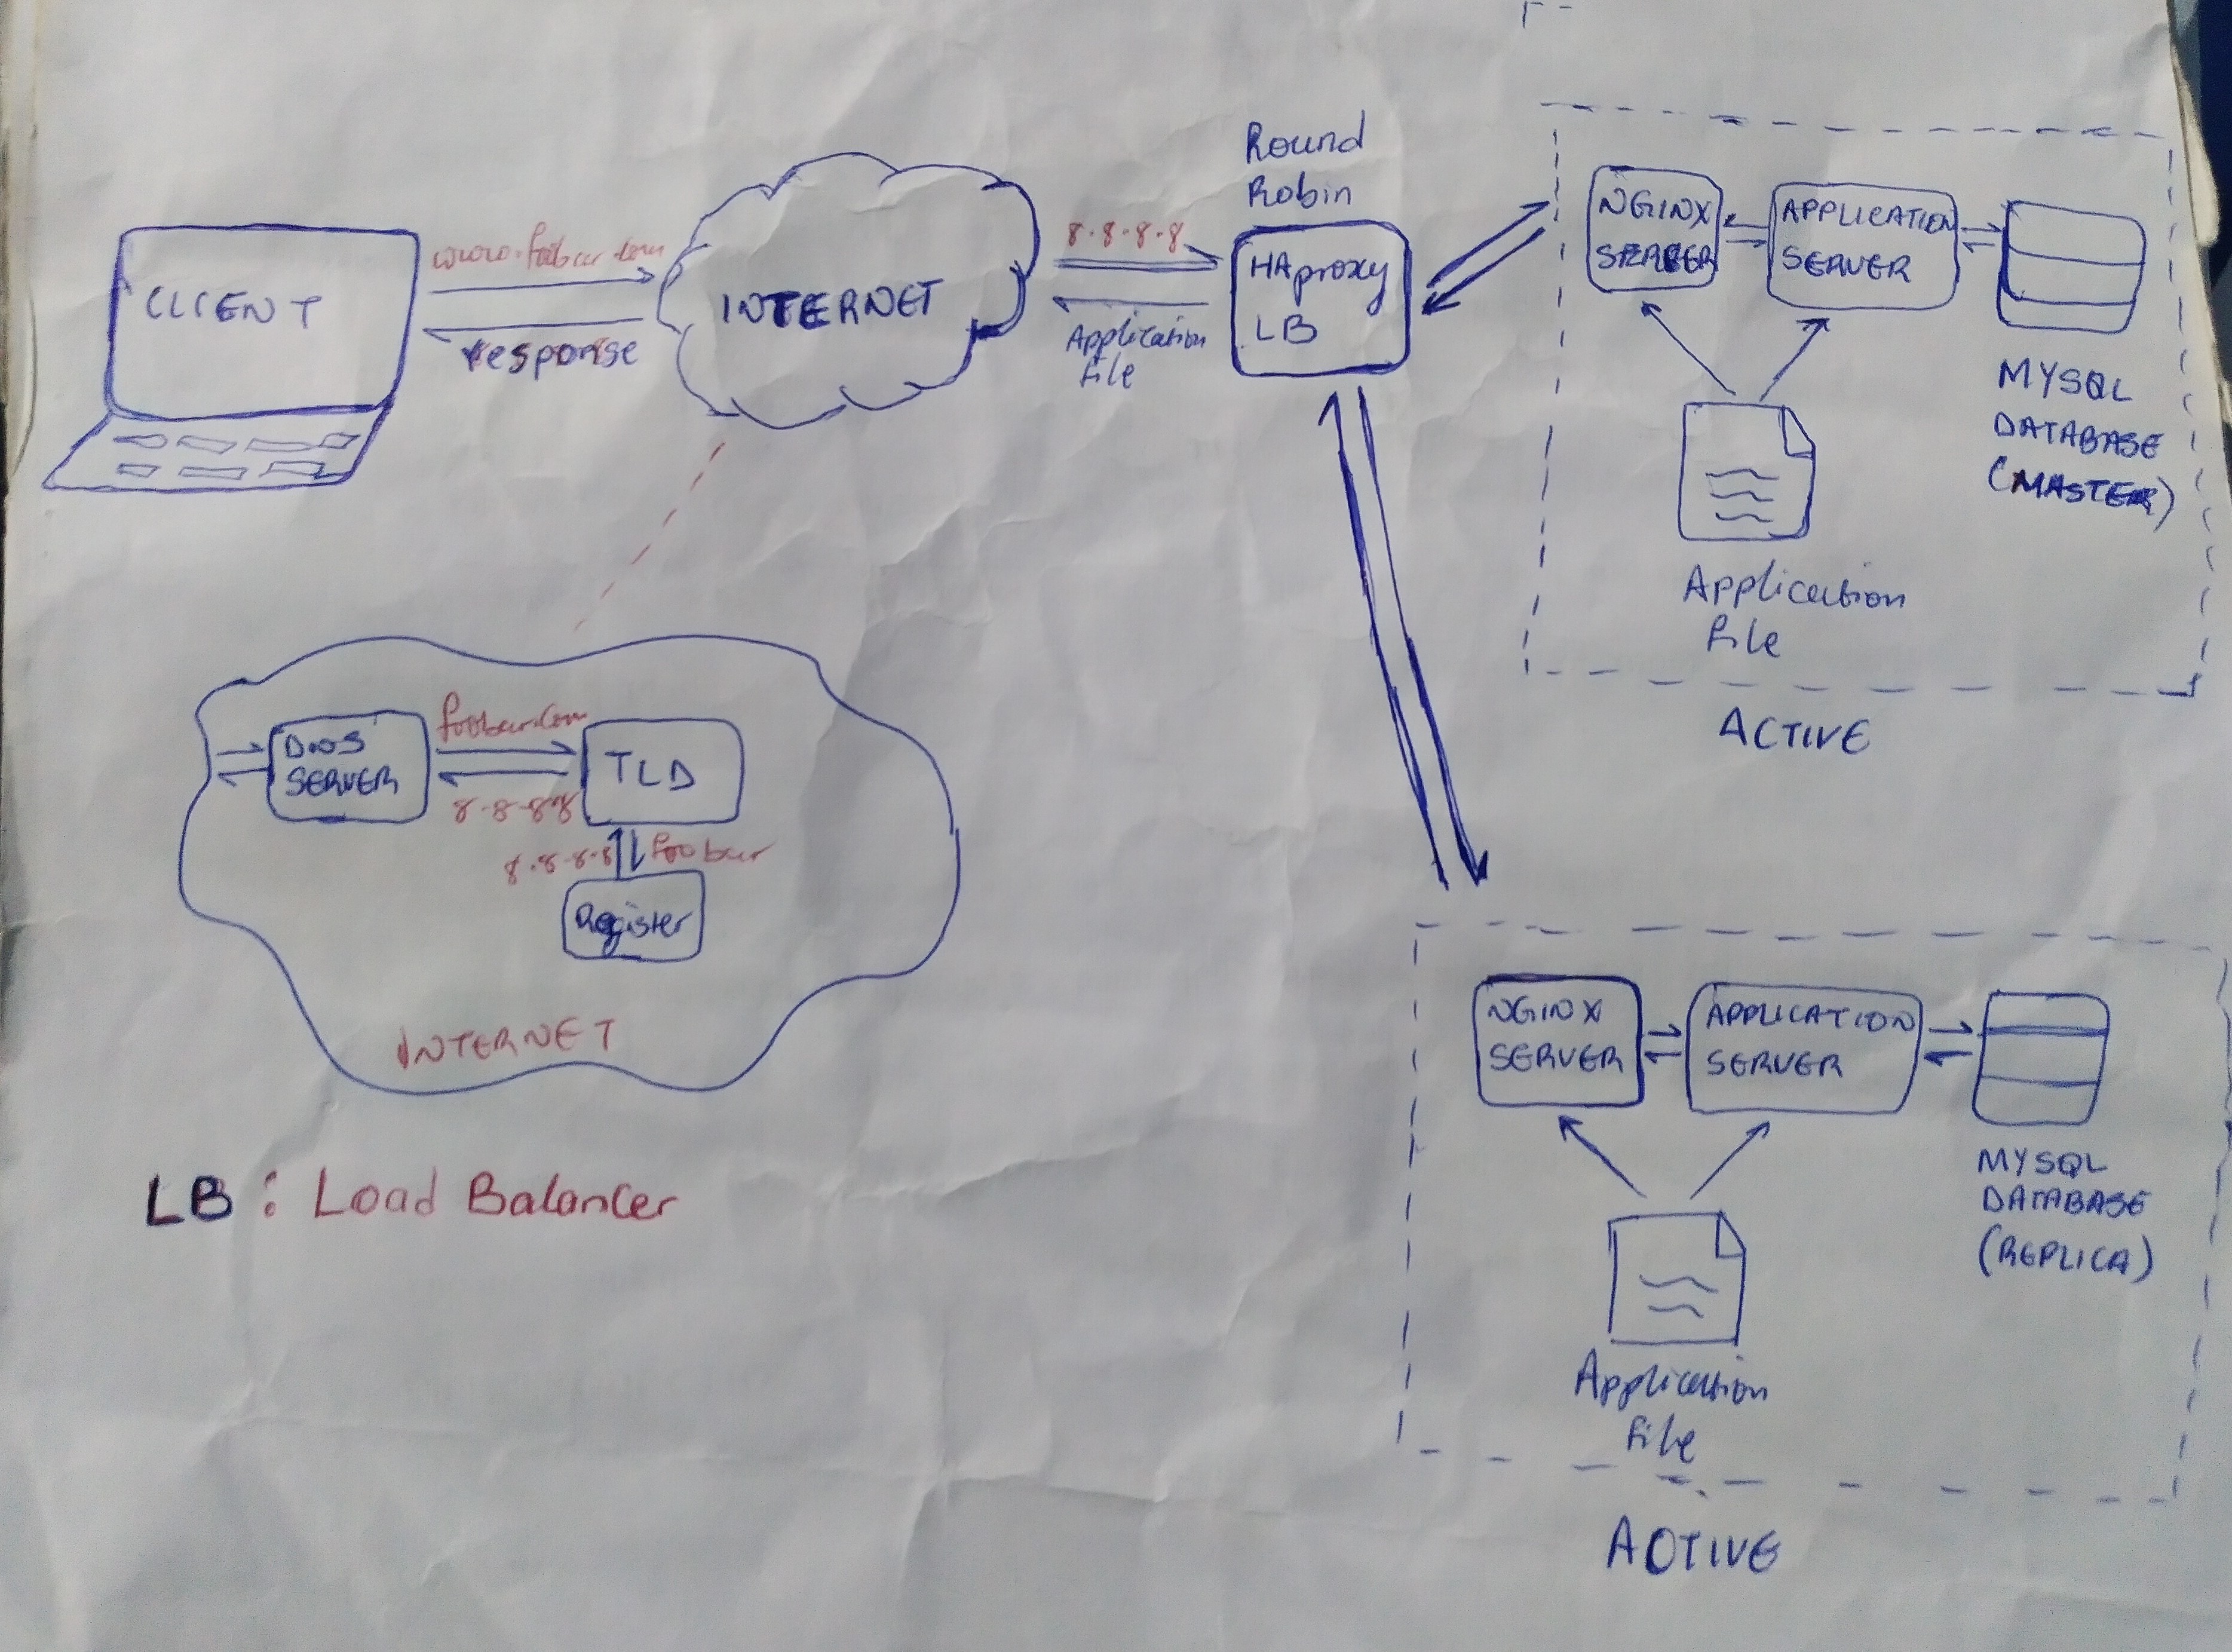 CLIENT
www.foobar.com
response
INTERNET
8.8.8.8
Application
file
Round
Robin
HAproxy
LB
NGINX
SERVER
APPLICATION
SERVER
MYSQL
DATABASE
(MASTER)
Application
file
ACTIVE
DNS
SERVER
foobar.com
8.8.8.8
TLD
8.8.8.8
foobar
Register
INTERNET
LB : Load Balancer
NGINX
SERVER
APPLICATION
SERVER
MYSQL
DATABASE
(REPLICA)
Application
file
ACTIVE